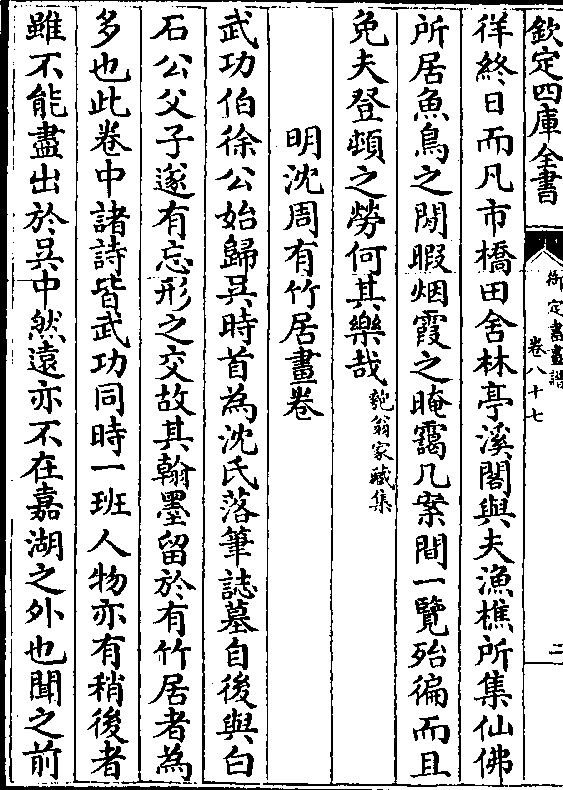 欽定四庫全書
御定書畫譜
卷八十七
二
徉終日而凡市橋田舍林亭溪閣與夫漁樵所集仙佛
所居魚鳥之閒暇烟霞之晻靄几案間一覽殆徧而且
免夫登頓之勞何其樂哉匏翁家藏集
明沈周有竹居畫卷
武功伯徐公始歸吳時首為沈氏落筆誌墓自後與白
石公父子遂有忘形之交故其翰墨留於有竹居者為
多也此卷中諸詩皆武功同時一班人物亦有稍後者
雖不能盡出於吳中然遠亦不在嘉湖之外也聞之前